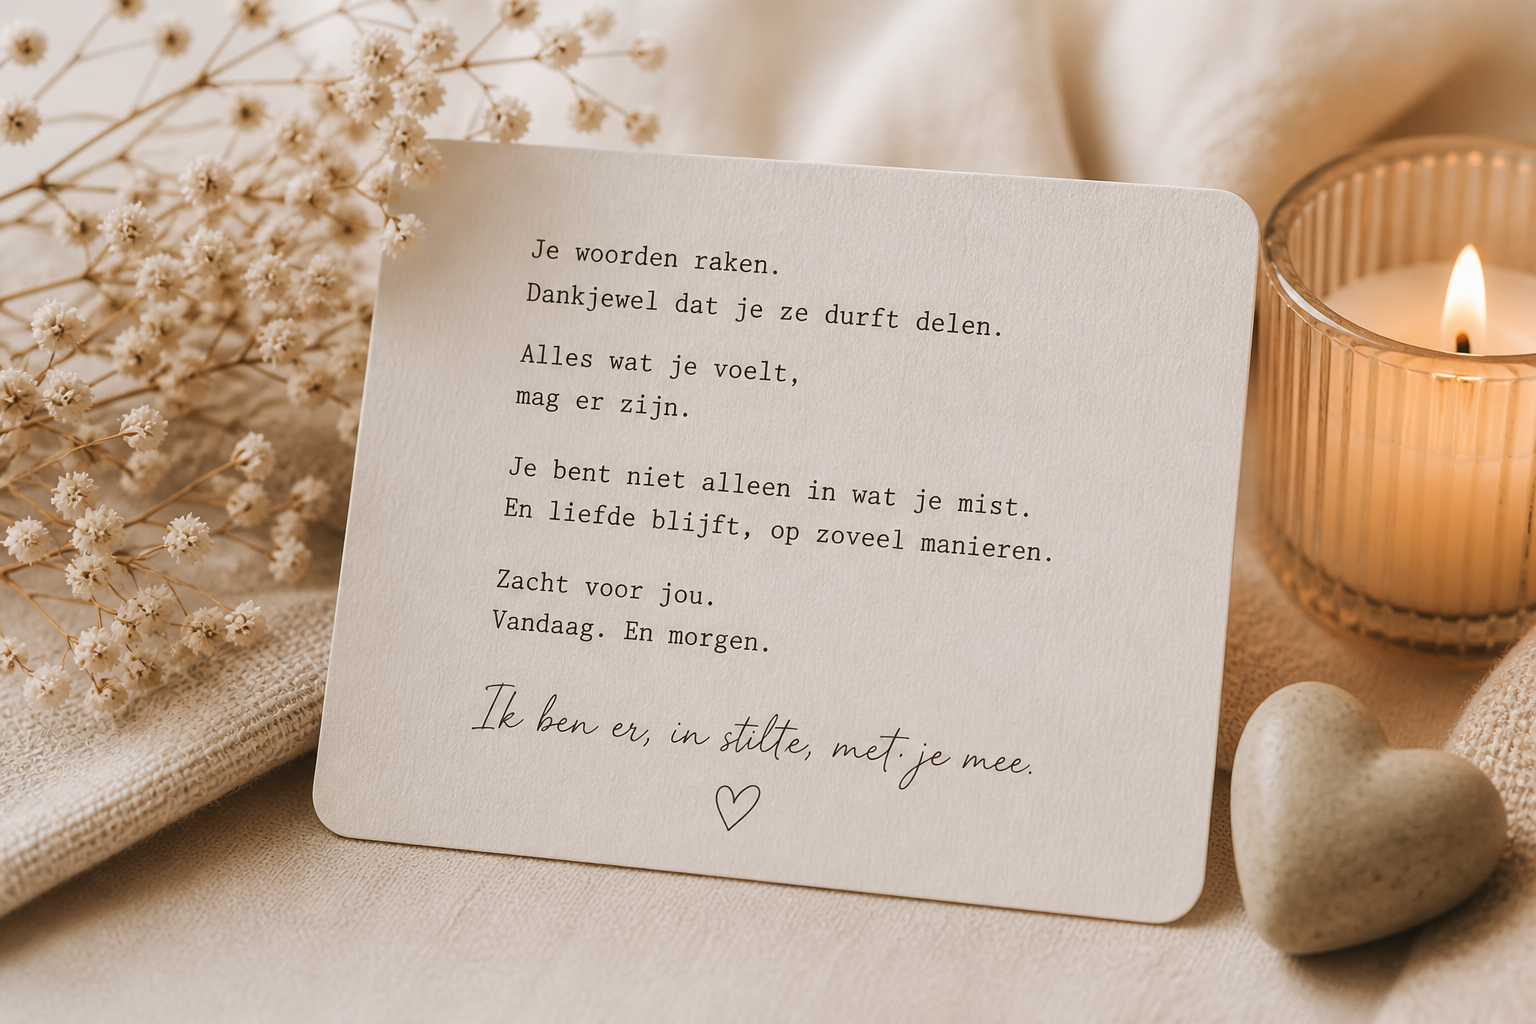 Je woorden raken.
Dankjewel dat je ze durft delen.
Alles wat je voelt,
mag er zijn.
Je bent niet alleen in wat je mist.
En liefde blijft, op zoveel manieren.
Zacht voor jou.
Vandaag. En morgen.
Ik ben er, in stilte, met je mee.